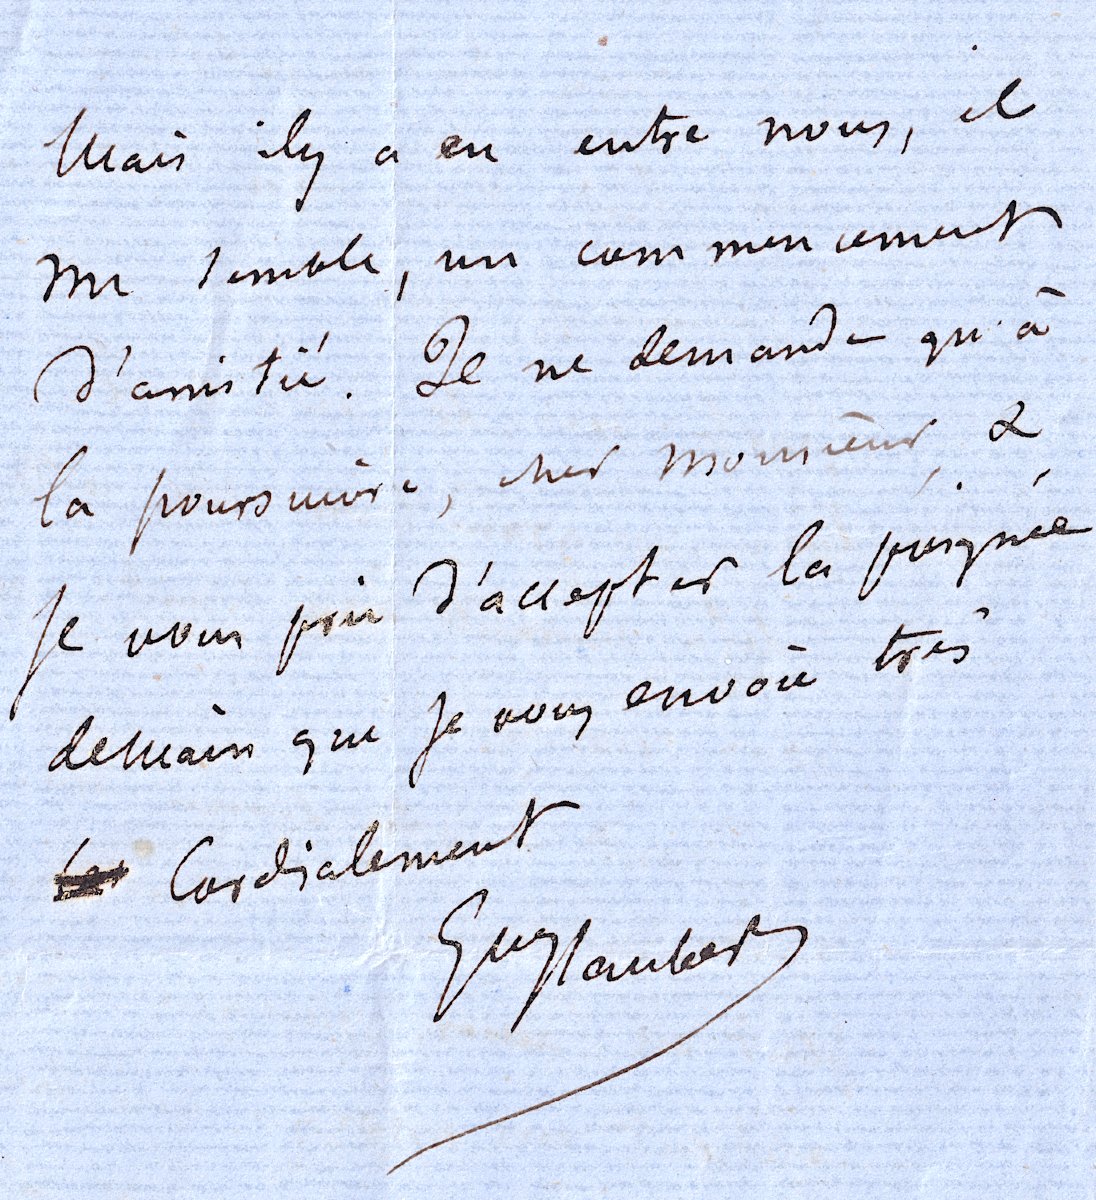 Mais il y a eu entre nous, il
me semble, un commencement
d'amitié. Je ne demande qu'à
la poursuivre, cher Monsieur, &
je vous prie d'accepter la poignée
de main que je vous envoie très
Cordialement
Gve Flaubert